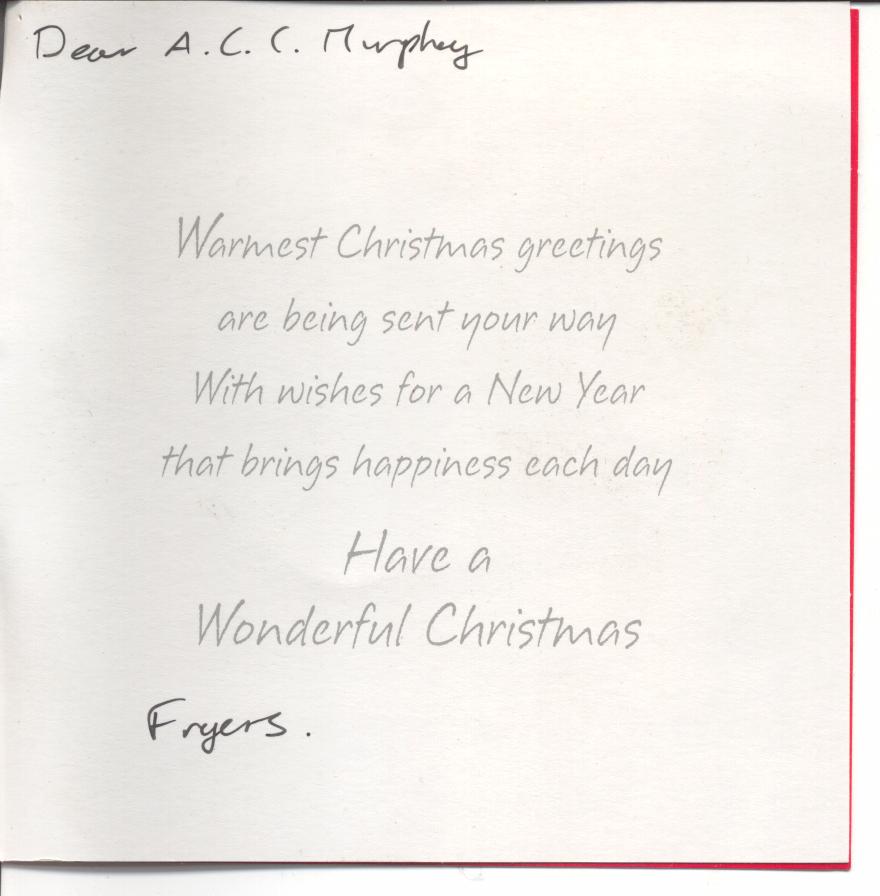 Dear A.C.C. Murphey
Warmest Christmas greetings
are being sent your way
With wishes for a New Year
that brings happiness each day
Have a
Wonderful Christmas
Fryers.